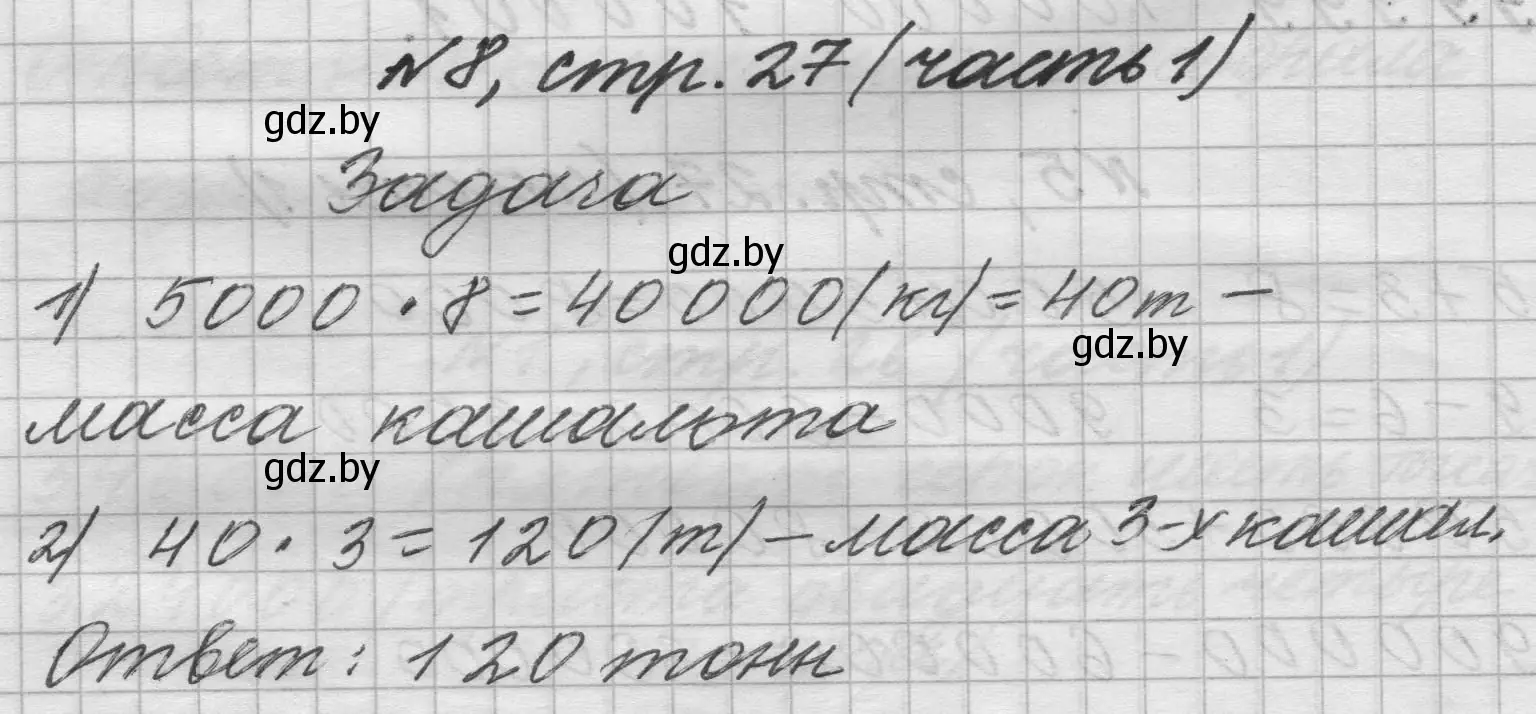 №8, стр. 27 (часть 1)
gdz.by
Задача
gdz.by
1) 5000 · 8 = 40 000 (кг) = 40т –
gdz.by
масса кашальота
gdz.by
2) 40 · 3 = 120 (т) – масса 3-х кашал.
Ответ: 120 тонн